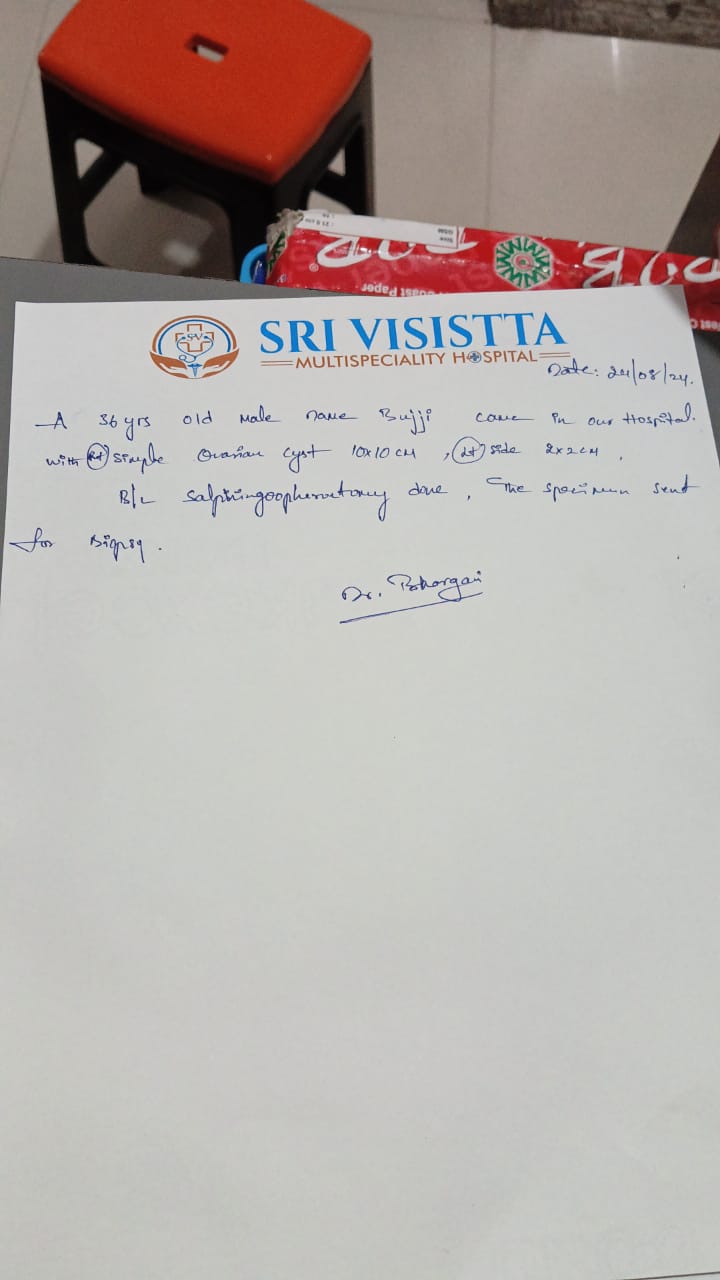 Coast Paper
SV
SRI VISISTTA
MULTISPECIALITY HOSPITAL
Date: 24/08/24.
A 36 yrs old Male name Bujji came in our Hospital.
with Rt simple Ovarian cyst 10x10 CM , Lt side 2x2 CM ,
B/L salphingoopherectomy done , The specimen sent
for Biopsy .
Dr. Bhargavi